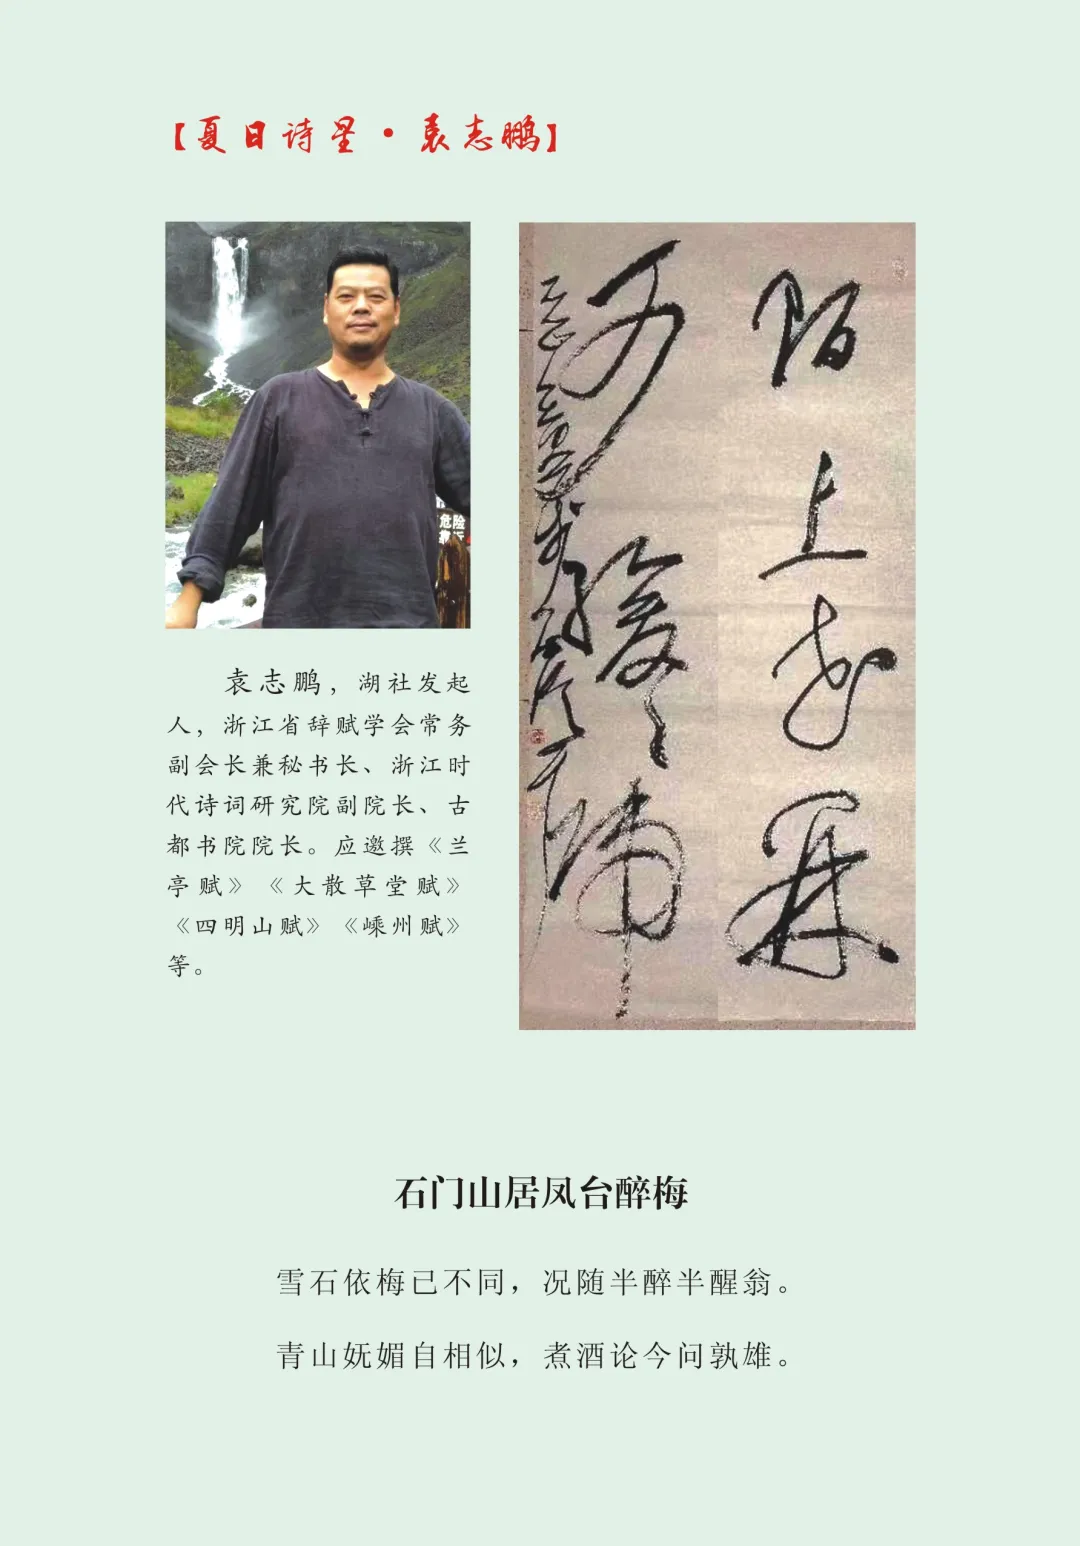 【夏日诗星·袁志鹏】
危险
袁志鹏，湖社发起
人，浙江省辞赋学会常务
副会长兼秘书长、浙江时
代诗词研究院副院长、古
都书院院长。应邀撰《兰
亭赋》《大散草堂赋》
《四明山赋》《嵊州赋》
等。
陌上花开
可缓缓归
石门山居凤台醉梅
雪石依梅已不同，况随半醉半醒翁。
青山妩媚自相似，煮酒论今问孰雄。